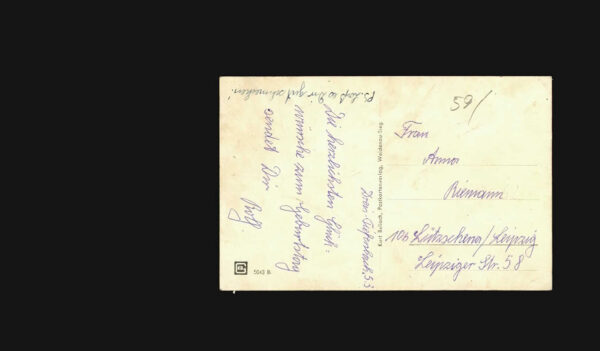 P.S. Laß es Dir gut schmecken!
Die herzlichsten Glück-
wünsche zum Geburtstag
sendet Dir
Rolf
5043 B
Kurt Bellach, Postkartenverlag, Weidenau-Sieg
59/
Frau
Anna
Riemann
10b Lützschena/Leipzig
Leipziger Str. 58